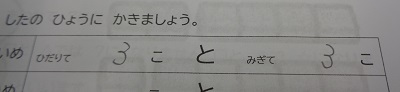 したの ひょうに かきましょう。
いめ ひだりて 3 こ と みぎて 3 こ
め と